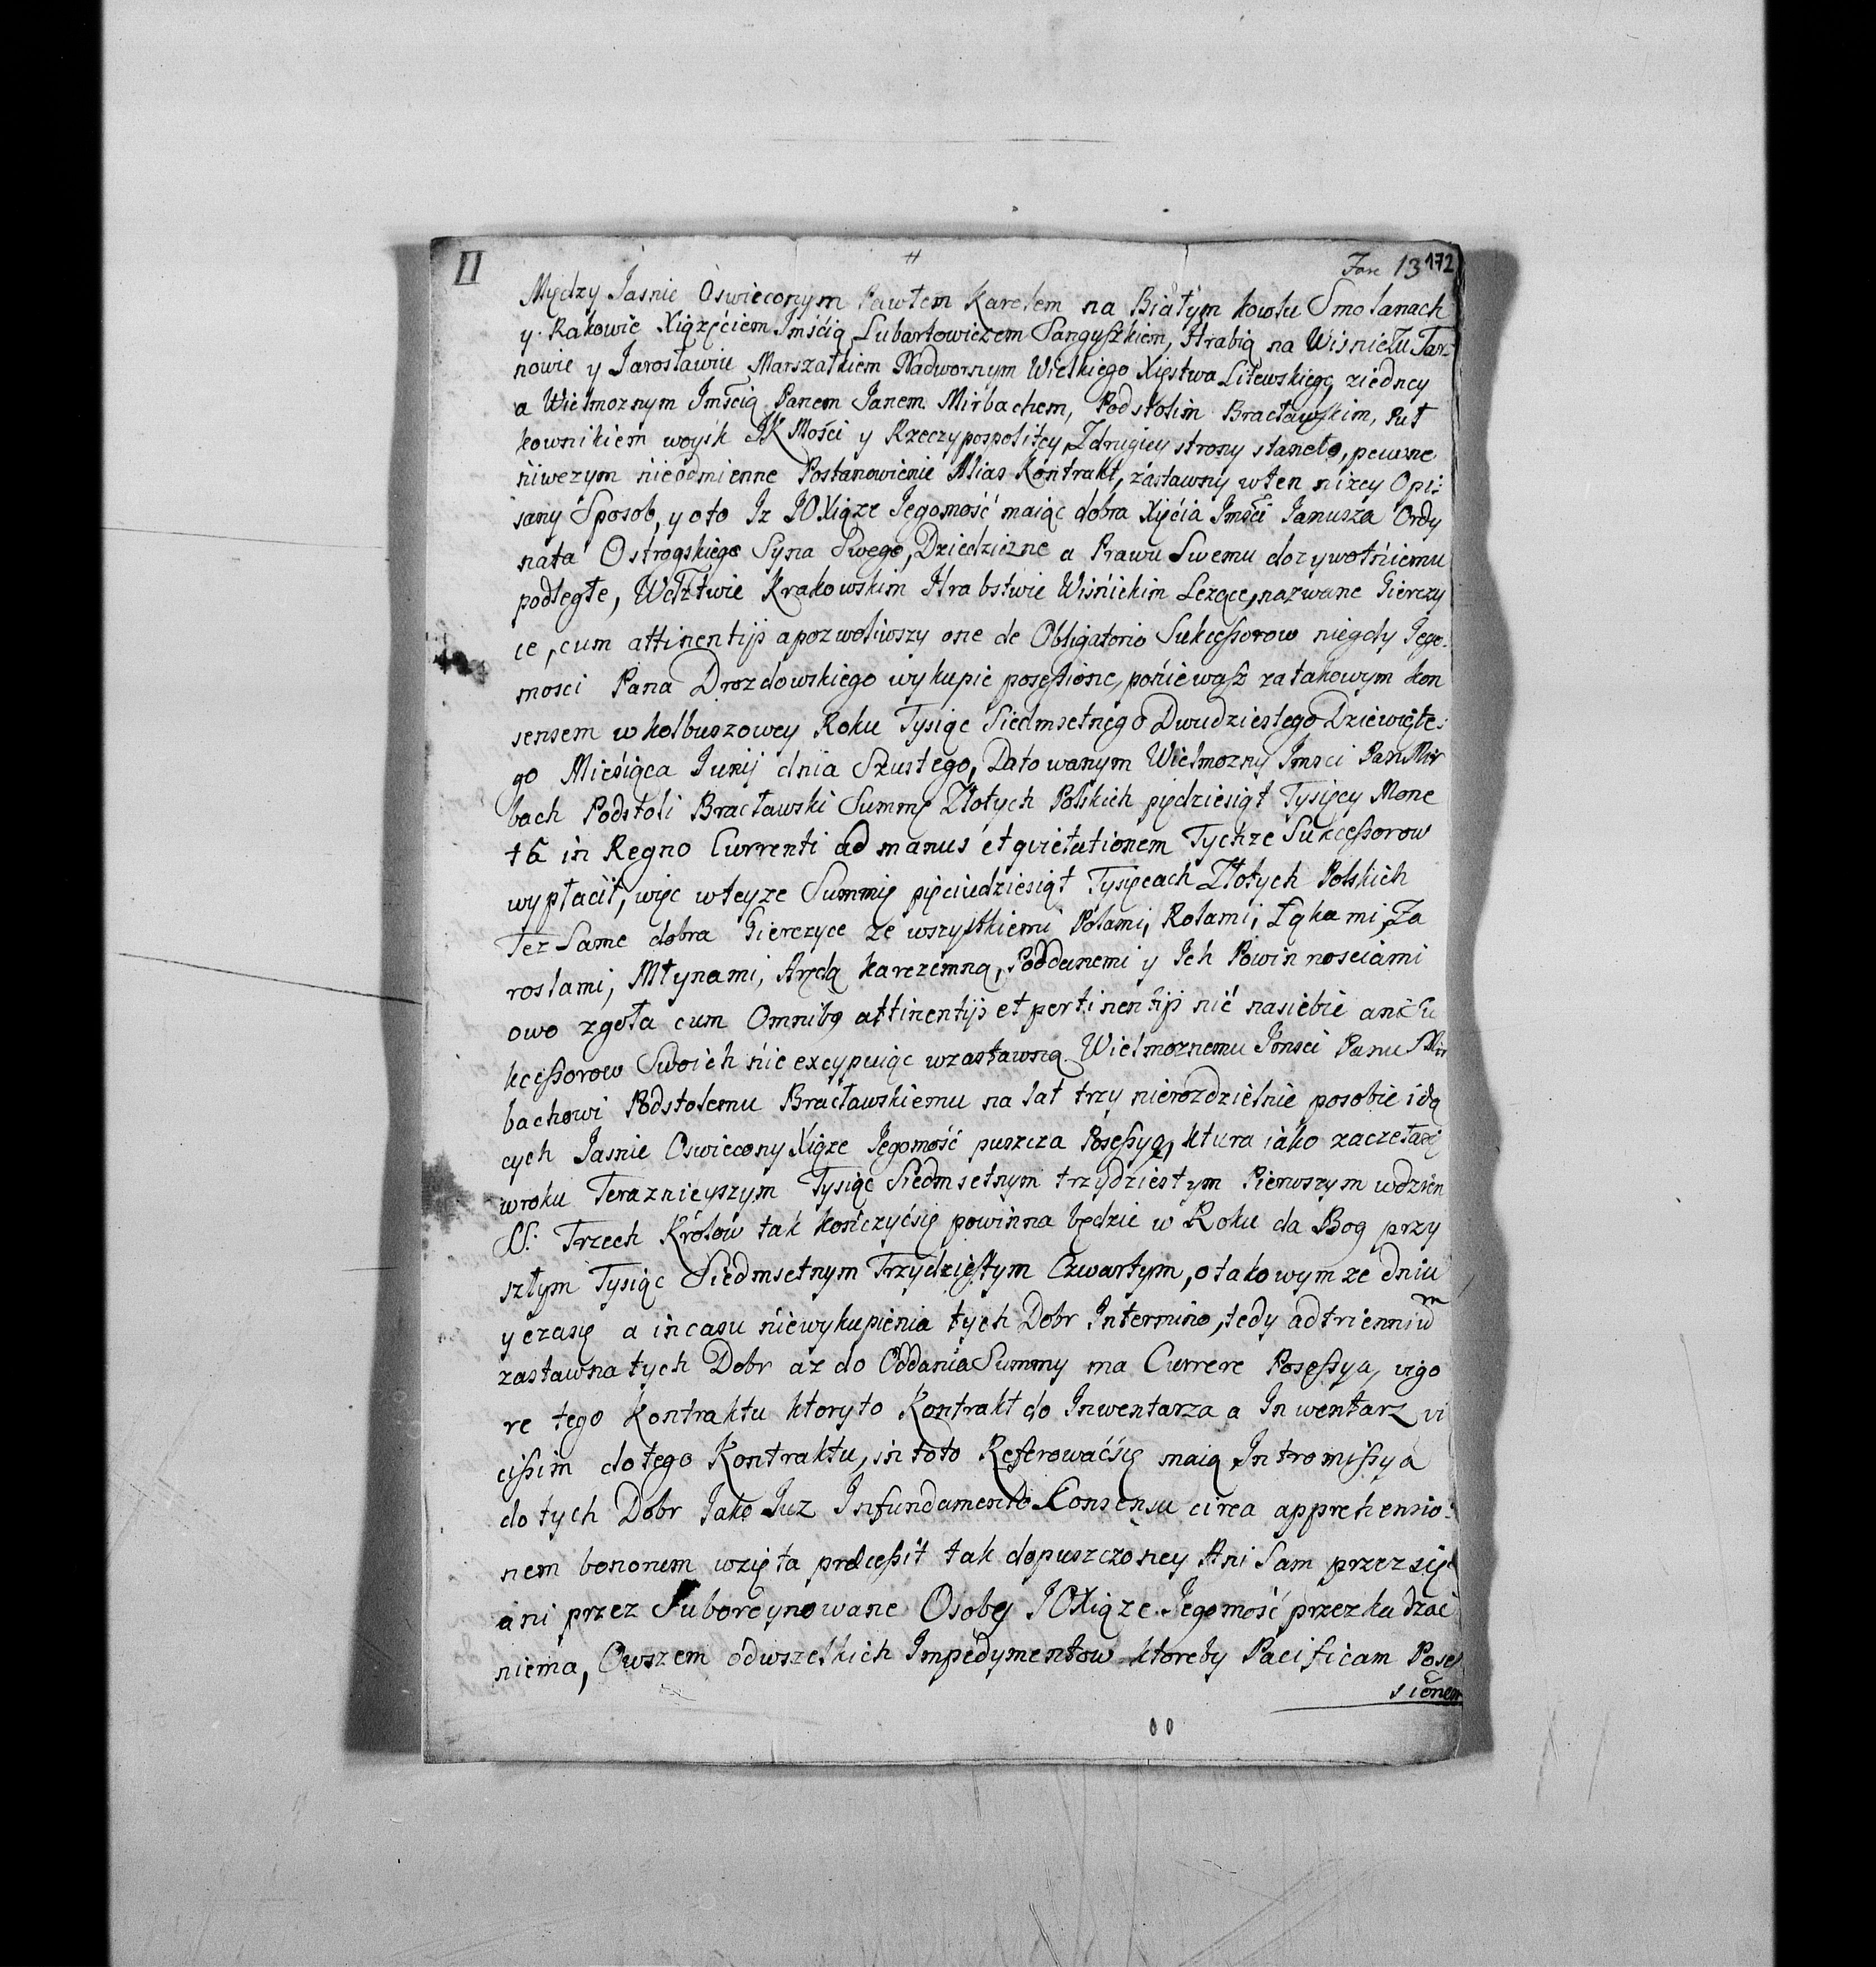 II # Fasc 13 172
Między Jasnie Oswieconym Pawłem Karolem na Białym kowlu Smolanach
y Rakowie Xiążęciem Jmścią Lubartowiczem Sanguszkiem, Hrabią na Wisniczu Tar:
nowie y Jarosławiu Marszałkiem Nadwornym Wielkiego Xięstwa Litewskiego, ziedney
a Wielmoznym Jmścią Panem Janem Mirbachem, Podstolim Bracławskim, Puł
kownikiem woysk JK Mości y Rzeczypospolitey, Zdrugiey strony staneło, pewne
niwczym nieodmienne Postanowienie Alias Kontrakt, zastawny wten nizey Opi:
sany Sposob, y oto Iz JOXiąze Jegomość maiąc dobra Xięcia Jmści Janusza Ordy
nata Ostrogskiego Syna Swego, Dziedziczne a Prawu Swemu dozywotniemu
podległe, Wdztwie Krakowskim Hrabstwie Wiśnickim Lezące, nazwane Gierczy
ce, cum attinentijs apozwoliwszy one de Obligatorio Sukcessorow niegdy Jego:
mosci Pana Drozdowskiego wykupic posessione, poniewasz zatakowym kon
sensem w kolbuszowey Roku Tysiąc Siedmsetnego Dwudziestego Dziewiąte:
go Miesiąca Junij dnia Szustego, Datowanym Wielmozny Jmsci Pan Mir
bach Podstoli Bracławski Summę Złotych Polskich pięćdziesiąt Tysięcy Mone
tæ in Regno Currenti ad manus et quietationem Tychze Sukcessorow
wypłacił, więc wteyze Summie pięciudziesiąt Tysięcach Złotych Polskich
Tez Same dobra Gierczyce ze wszystkiemi Polami, Rolami, Łąkami, Za
roslami, Młynami, Arędą karczemną, Poddanemi y Ich Powinnosciami
owo zgoła cum Omnibg attinentijs et pertinentijs nić nasiebie ani Su
kcessorow Swoich nie excypuiąc wzastawną Wielmoznemu Jmsci Panu Mir
bachowi Podstolemu Bracławskiemu na lat trzy nierozdzielnie posobie idą
cych Jasnie Oswiecony Xiąze Jegomość puszcza Posessyą, ktura iako zaczełasię
wroku Teraznieyszym Tysiąc Siedmsetnym trzydziestym Pierwszym wdzien
SS: Trzech Królów tak kończyćsię powinna będzie w Roku da Bog przy
szłym Tysiąc Siedmsetnym Trzydziestym Czwartym, o takowymze dniu
y czasię a incasu niewykupienia tych Dobr Intermino, tedy adtriennium
zastawna tych Dobr az do Oddania Summy ma Currere Posessya, vigo
re tego Kontraktu ktoryto Kontrakt do Inwentarza a Inwentarz vi
cissim dotego Kontraktu, in toto Referowaćsię maią, Intromissya
do tych Dobr Jako Juz Infundamento Konsensu circa apprehensio:
nem bonorum wzięta præcessit tak dopuszczoney Ani Sam przezsię
ani przez Subordynowane Osoby JOXiąze Jegomość przezkadzać
niema, Owszem odwszelkich Impedymentow ktoreby Pacificam Poses
sionem